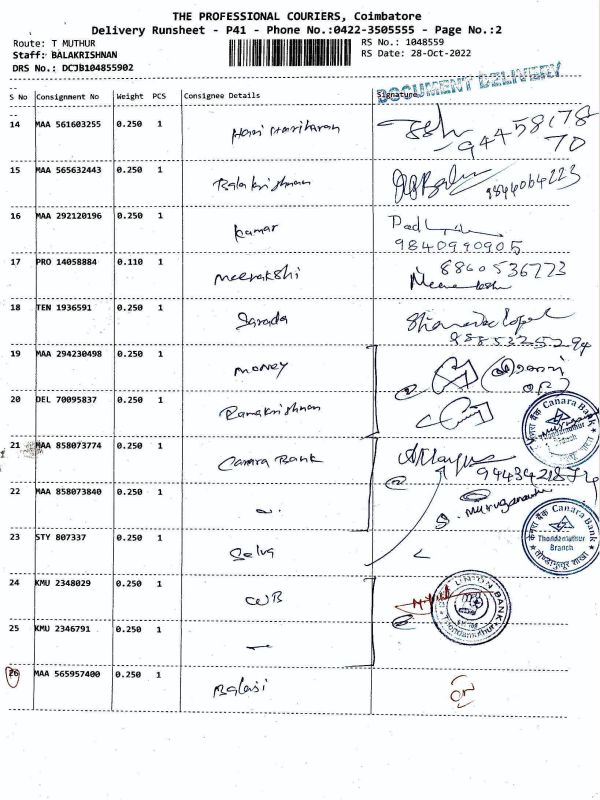 THE PROFESSIONAL COURIERS, Coimbatore
Delivery Runsheet - P41 - Phone No.:0422-3505555 - Page No.:2
Route: T MUTHUR RS No.: 1048559
Staff: BALAKRISHNAN RS Date: 28-Oct-2022
DRS No.: DCJB104855902
DOCUMENT DELIVERY
S No Consignment No Weight PCS Consignee Details Signature
14 MAA 561603255 0.250 1 Hari Hariharan
94458178
70
15 MAA 565632443 0.250 1 Balakrishnan 9844064223
16 MAA 292120196 0.250 1 Kumar
9840990905
17 PRO 14058884 0.110 1 Meenakshi 8860536773
Meenakshi
18 TEN 1936591 0.250 1 Sarada
19 MAA 294230498 0.250 1 money
20 DEL 70095837 0.250 1 Ramakrishnan
Canara Bank
Thondamuthur
Branch
21 MAA 858073774 0.250 1 Canara Bank
22 MAA 858073840 0.250 1
23 STY 807337 0.250 1 Selva
Canara Bank
Thondamuthur
Branch
24 KMU 2348029 0.250 1 CUB
25 KMU 2346791 0.250 1
26 MAA 565957400 0.250 1 Balaji